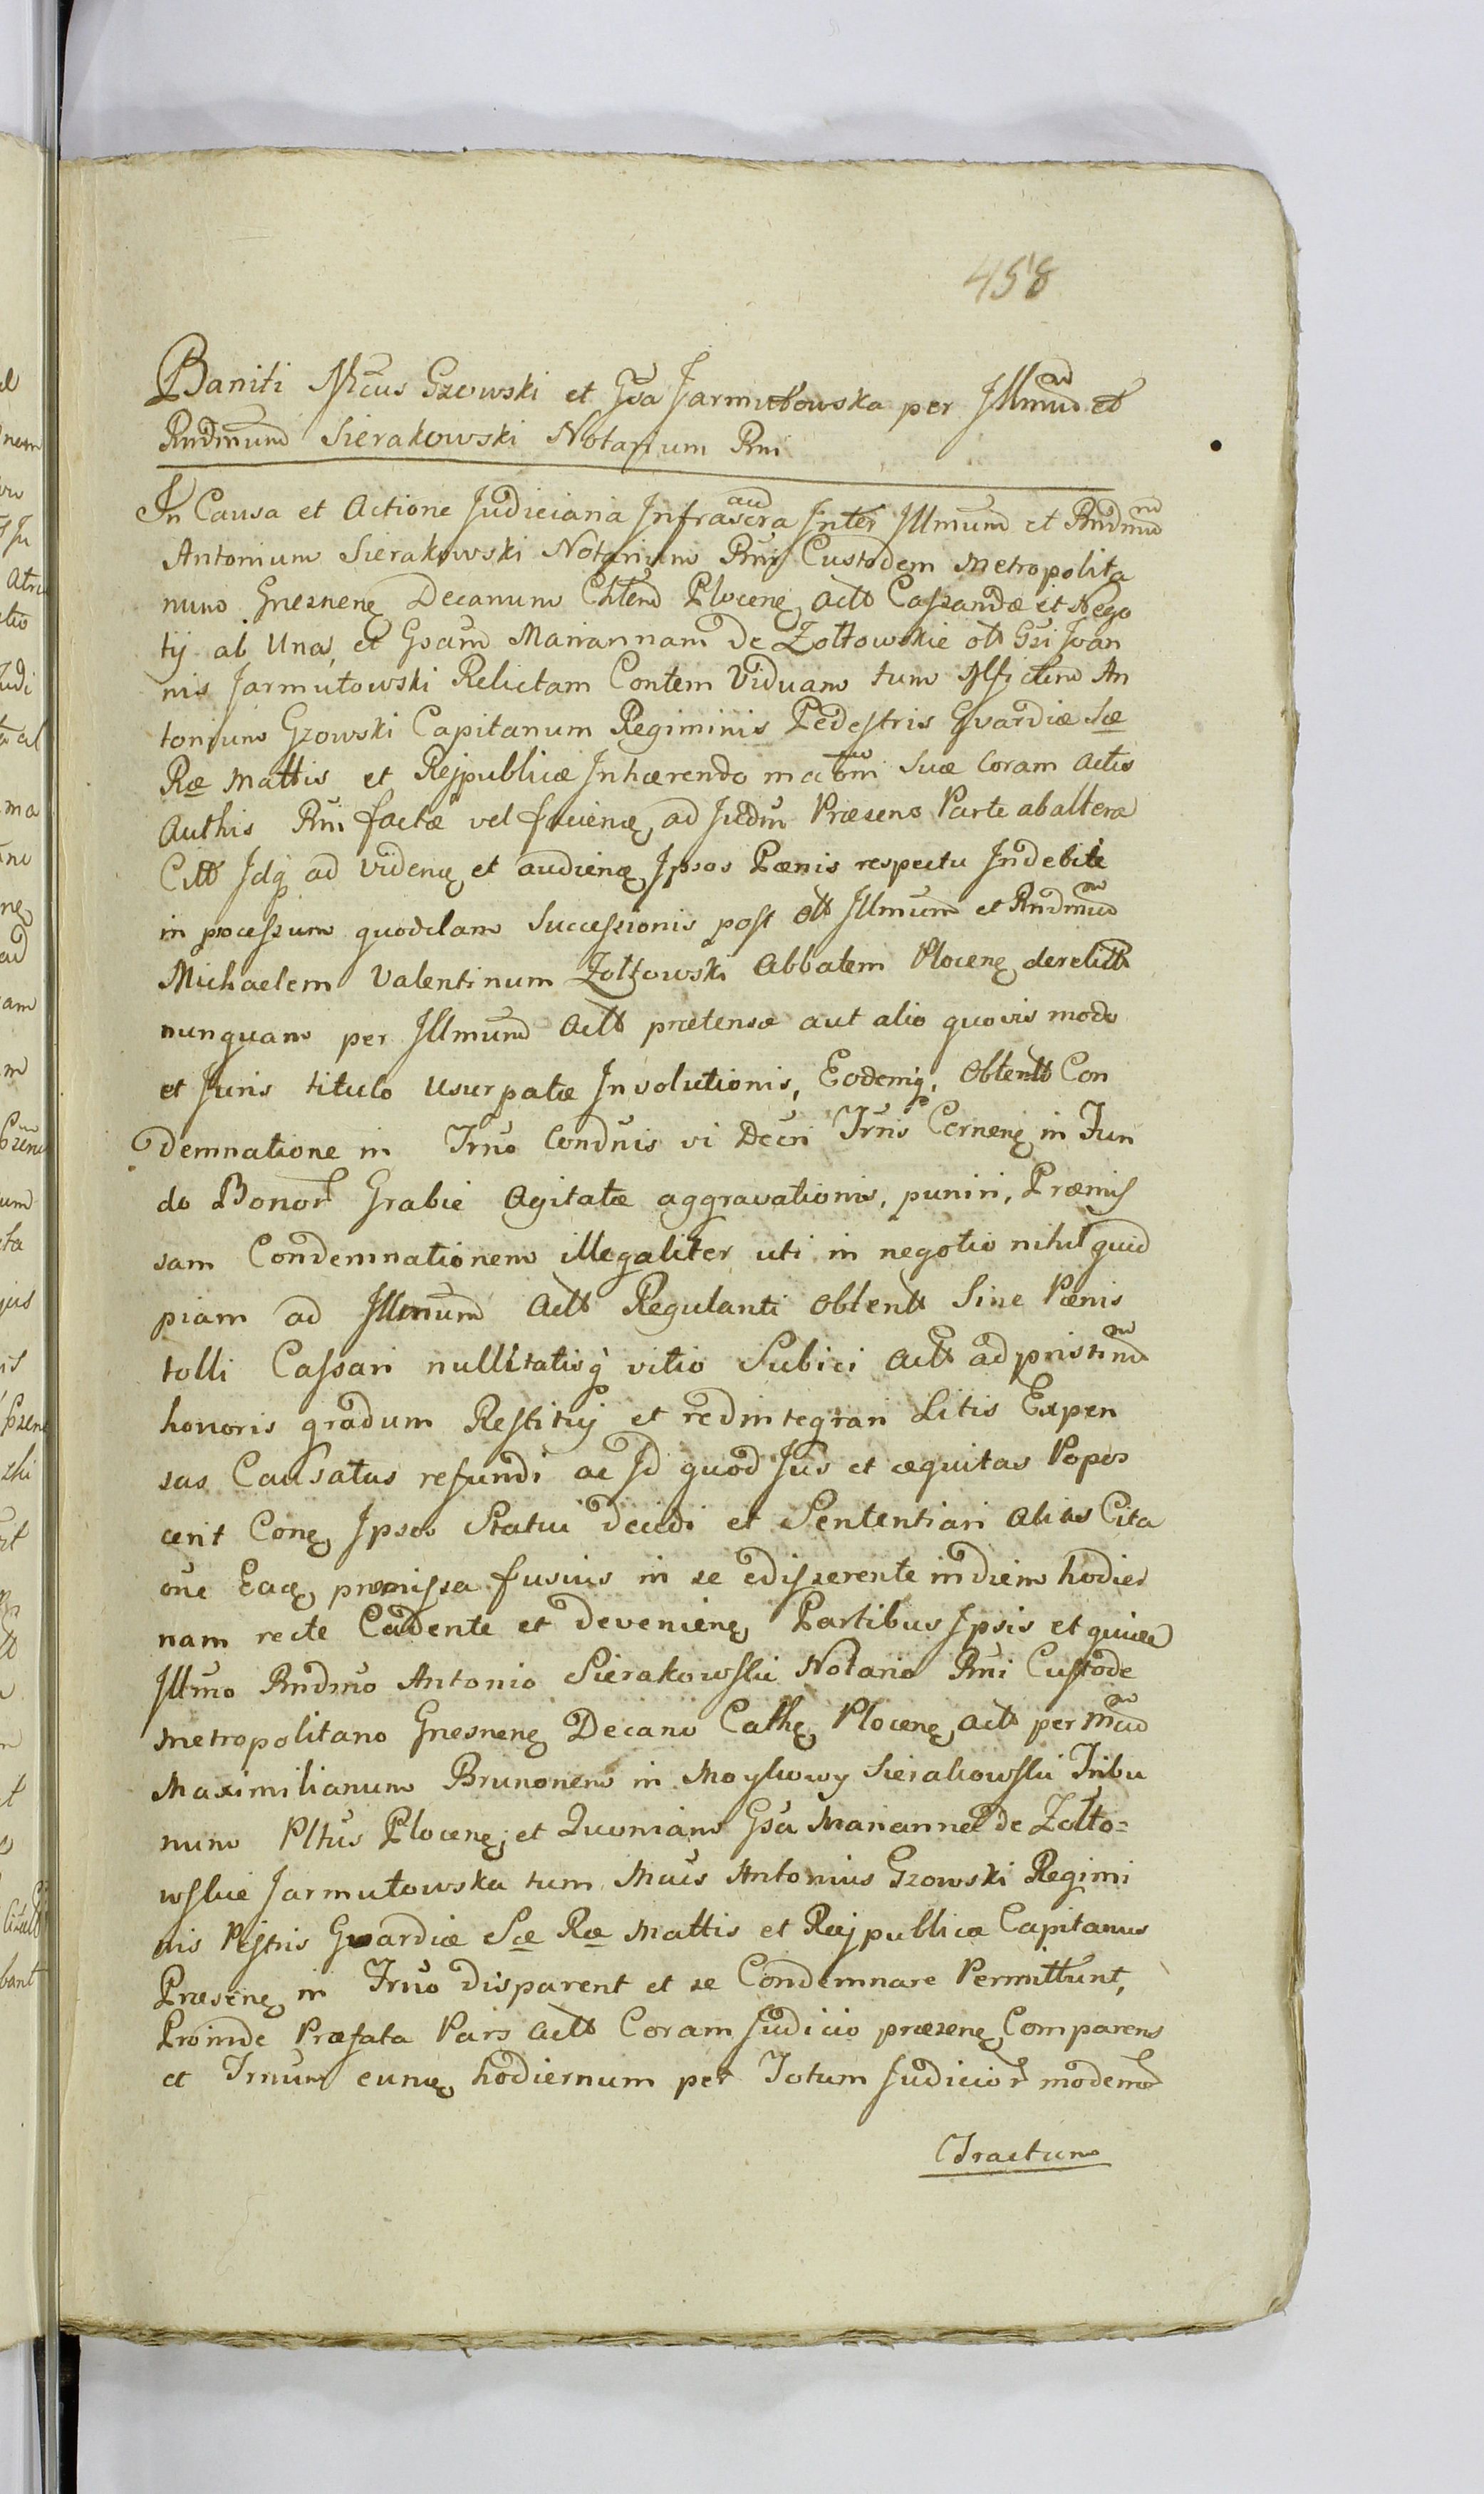 458
Baniti Mficus Gzowski et Gsa Jarmutowska per Illmum et
Rndmum Sierakowski Notarium Rni
In Causa et Actione Judiciaria Infrascra Inter Illmum et Rndmum
Antonium Sierakowski Notarium Rni Custodem Metropolita
num Gnesnenę Decanum Plocenę Actt Cassandæ et Nego
tij ab Una, et Gsam Mariannam de Zołtowskie ott Gsi Joan
nis Jarmutowski Relictam Contem Viduam tum An
tonium Gzowski Capitanum Regiminis Pedestris Gvardiæ Sæ
Ræ Mattis et Rejpublicæ Inhærendo Suæ Coram Actis
Authis Rni factæ vel facienę ad Judm Præsens Parte ab altera
Citt Idq ad videnę et audienę Ipsos Pænis respectu Indebite
in processum quoddam Successionis post ott Illmum et Rndmum
Michaelem Valentinum Zołtowski Abbatem Plocenę derelitt
nunquam per Illmum Actt prætensæ aut alio quovis modo
et Juris titulo Usurpatæ Involutionis, Eodemq. Obtentt Con
demnatione in Trno Condnis vi Decri Trnis Cernenę in Fun
do Bonor Grabie Agitatæ aggravationis, puniri, Præmis
sam Condemnationem illegaliter uti in negotio nihil quid
piam ad Illmum Actt Regulanti obtentt Sine Pænis
tolli Cassari nullitatisq vitio Subici Actt ad pristinum
honoris gradum Restituj et redintegrari Litis Expen
sas Causatas refundi ac Id quod Jus et æquitas Popos
cerit Conę Ipsos Statui decidi et Sententiari Alias Cita
one Eacę præmissa fusius in se edisserente in diem hodier
nam recte Cadente et devenienę Partibus Ipsis et quidem
Illmo Rndmo Antonio Sierakowski Notario Rni Custode
Metropolitano Gnesnenę Decano Cathę Plocenę Actt per Mcum
Maximilianum Brunonem in Moykowy Sierakowski Tribu
num Pltus Plocenę, et Quoniam Gsa Marianna de Zołto=
wskie Jarmutowska tum Mcus Antonius Gzowski Regimi
nis Pestris Gvardiæ Sæ Ræ Mattis et Reijpublicæ Capitanus
Præsenę in Trno disparent et se Condemnare Permittunt,
Proinde Præfata Pars Actt Coram Judicio præsenę Comparens
et Trnum cunę hodiernum per Totum Judicior modernor
Tractum